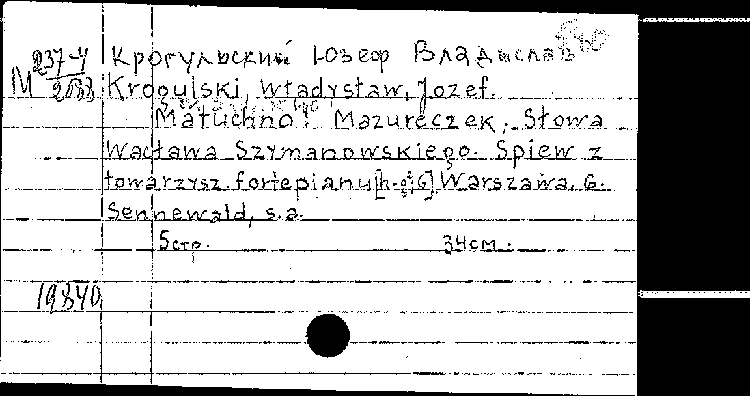 М 237-4
2633
Крогульский Юзеф Владыслав
Krogulski, Władysław, Jozef.
Matuchno! Mazureczek. Słowa
Wacława Szymanowskiego. Spiew z
towarzysz. fortepianu Warszawa, G.
Sennewald, s.a.
5 стр. 34 см.
19840